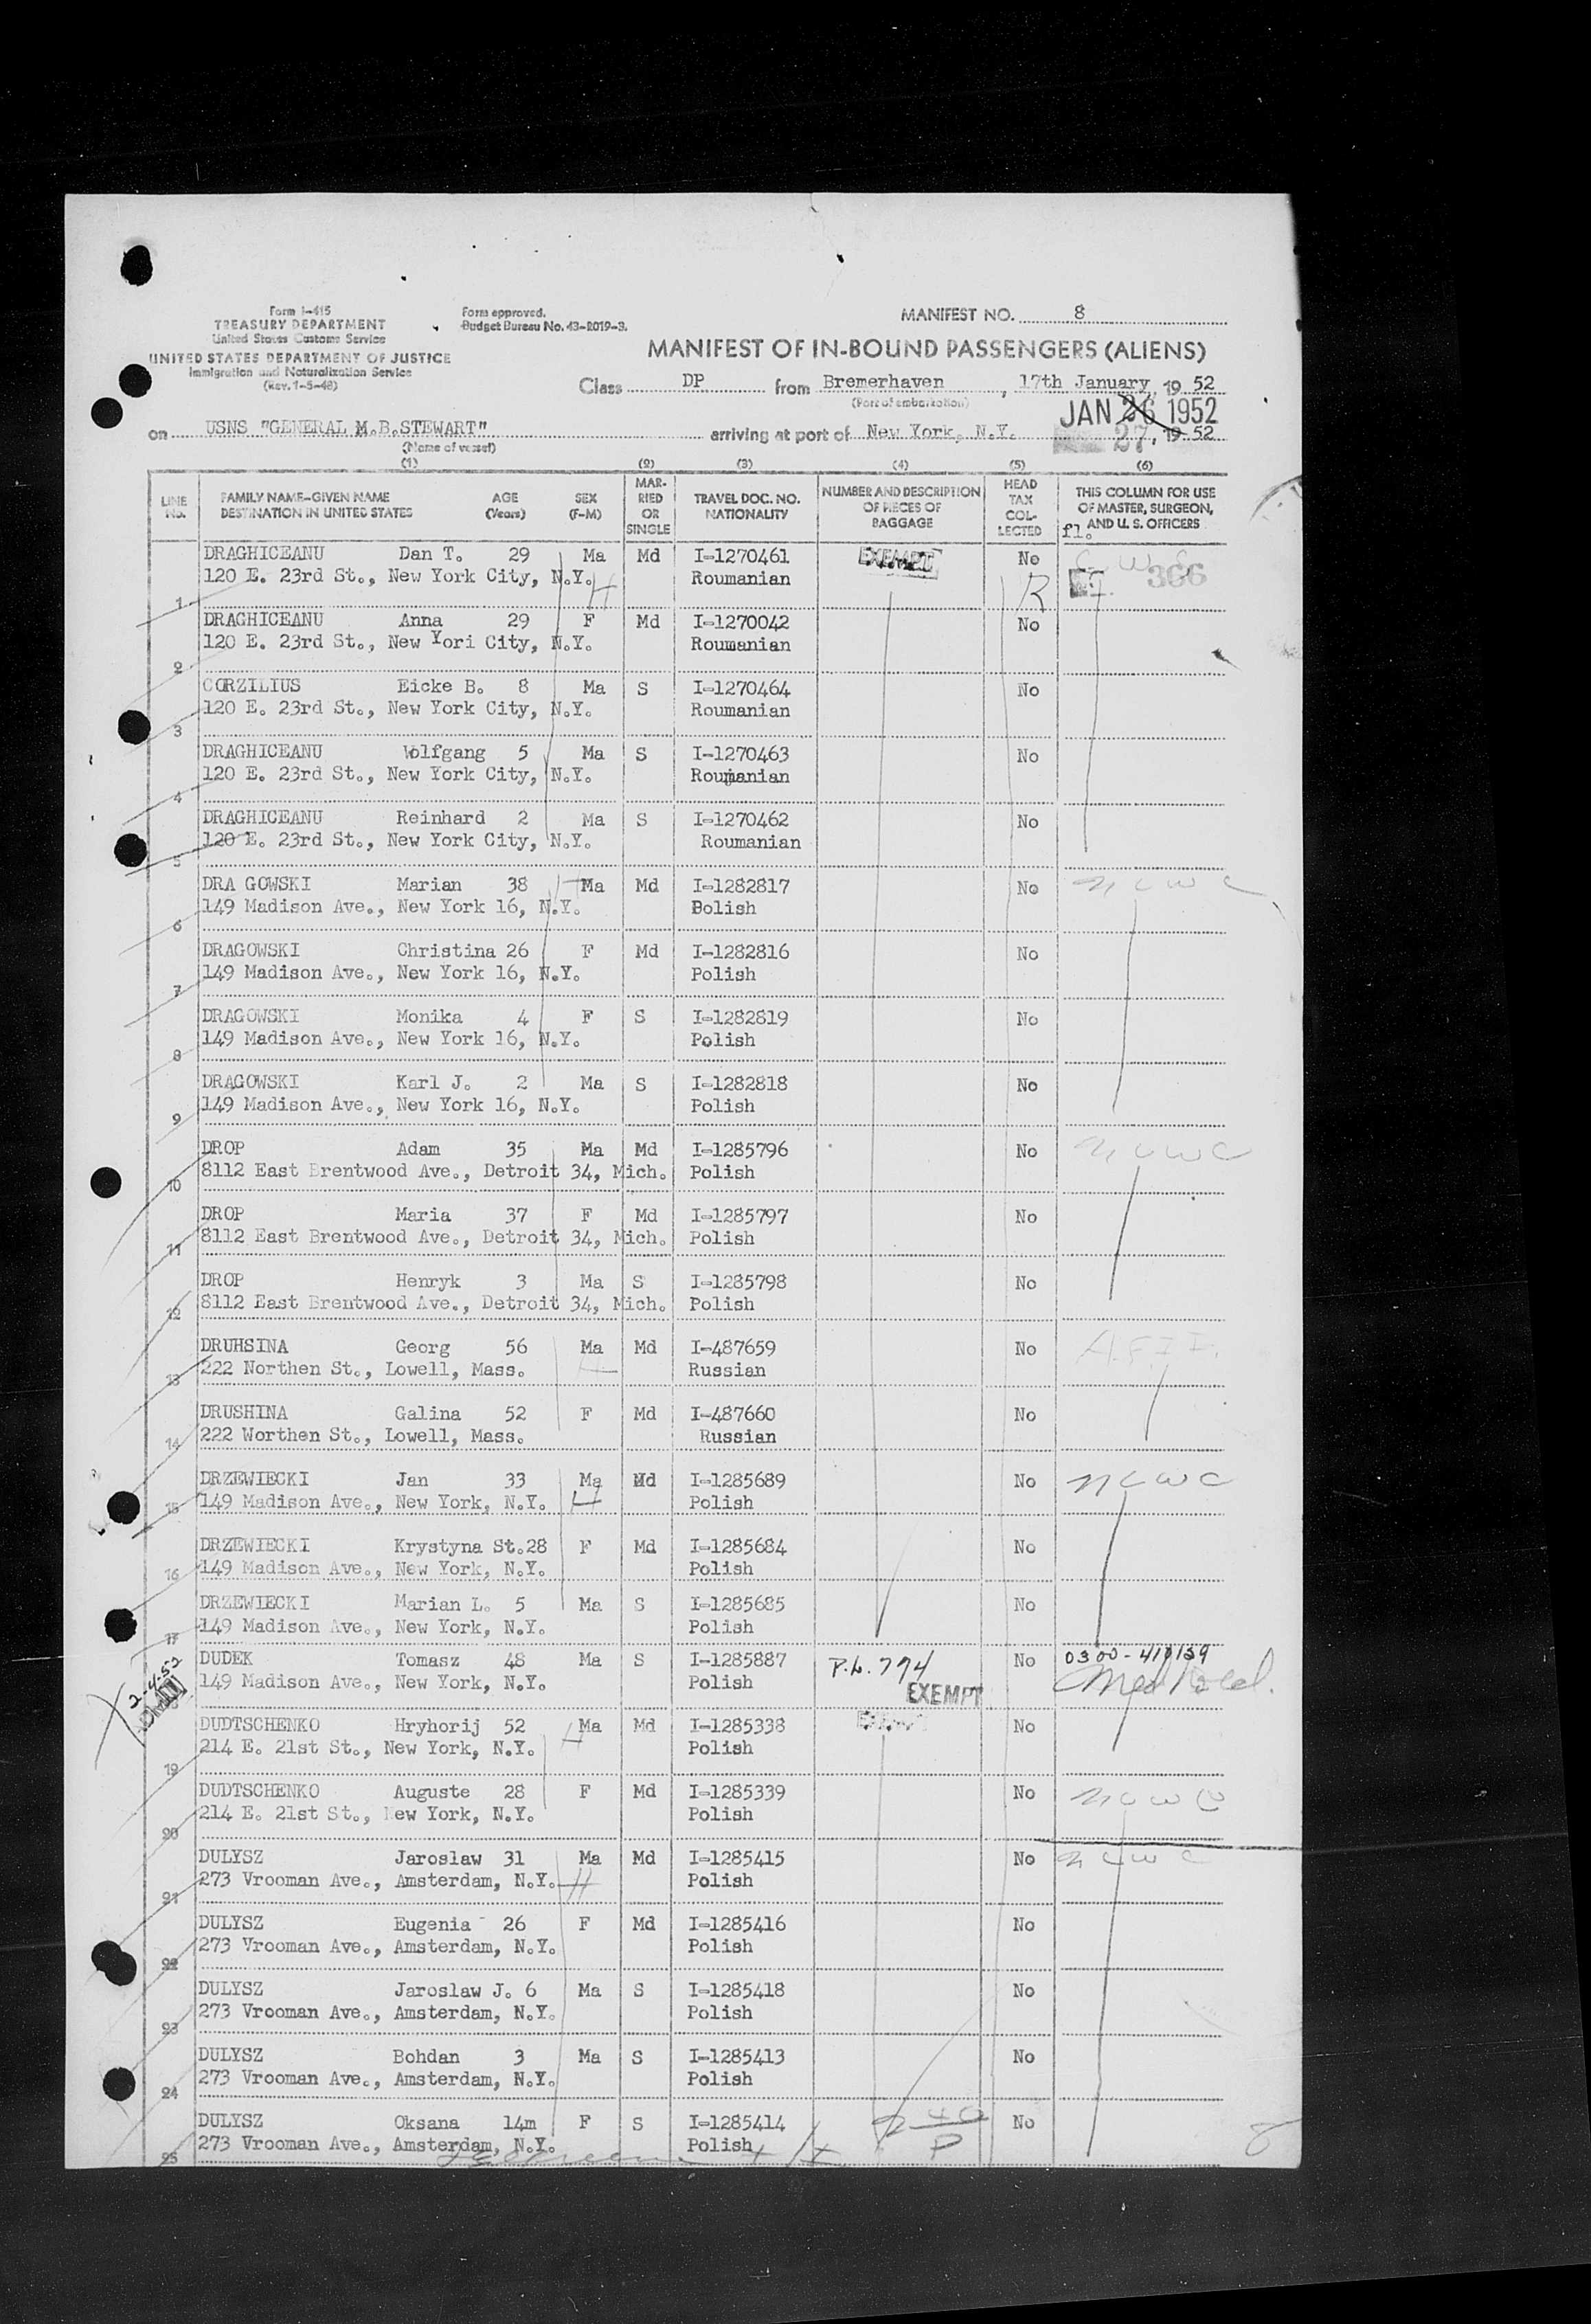 Form I-415
TREASURY DEPARTMENT
United States Customs Service
UNITED STATES DEPARTMENT OF JUSTICE
Immigration and Naturalization Service
(Rev. 1-5-48)
Form approved.
Budget Bureau No. 43-R019-3.
MANIFEST NO. 8
MANIFEST OF IN-BOUND PASSENGERS (ALIENS)
Class DP from Bremerhaven, 17th January, 19 52
(Port of embarkation)
JAN 26 1952
on USNS "GENERAL M.B.STEWART" arriving at port of New York, N.Y. 27, 19 52
(Name of vessel)
(1) (2) (3) (4) (5) (6)
LINE No. FAMILY NAME-GIVEN NAME DESTINATION IN UNITED STATES AGE (Years) SEX (F-M) MARRIED OR SINGLE TRAVEL DOC. NO. NATIONALITY NUMBER AND DESCRIPTION OF PIECES OF BAGGAGE HEAD TAX COLLECTED THIS COLUMN FOR USE OF MASTER, SURGEON, AND U. S. OFFICERS
fl.
DRAGHICEANU Dan T. 29 Ma Md I-1270461 EXEMPT No 366
120 E. 23rd St., New York City, N.Y. H Roumanian R
1
DRAGHICEANU Anna 29 F Md I-1270042 No
120 E. 23rd St., New Yori City, N.Y. Roumanian
2
CORZILIUS Eicke B. 8 Ma S I-1270464 No
120 E. 23rd St., New York City, N.Y. Roumanian
3
DRAGHICEANU Wolfgang 5 Ma S I-1270463 No
120 E. 23rd St., New York City, N.Y. Roumanian
4
DRAGHICEANU Reinhard 2 Ma S I-1270462 No
120 E. 23rd St., New York City, N.Y. Roumanian
5
DRA GOWSKI Marian 38 Ma Md I-1282817 No ncwc
149 Madison Ave., New York 16, N.Y. Bolish
6
DRAGOWSKI Christina 26 F Md I-1282816 No
149 Madison Ave., New York 16, N.Y. Polish
7
DRAGOWSKI Monika 4 F S I-1282819 No
149 Madison Ave., New York 16, N.Y. Polish
8
DRAGOWSKI Karl J. 2 Ma S I-1282818 No
149 Madison Ave., New York 16, N.Y. Polish
9
DROP Adam 35 Ma Md I-1285796 No ncwc
8112 East Brentwood Ave., Detroit 34, Mich. Polish
10
DROP Maria 37 F Md I-1285797 No
8112 East Brentwood Ave., Detroit 34, Mich. Polish
11
DROP Henryk 3 Ma S I-1285798 No
8112 East Brentwood Ave., Detroit 34, Mich. Polish
12
DRUHSINA Georg 56 Ma Md I-487659 No
222 Northen St., Lowell, Mass. H Russian
13
DRUSHINA Galina 52 F Md I-487660 No
222 Worthen St., Lowell, Mass. Russian
14
DRZEWIECKI Jan 33 Ma Md I-1285689 No ncwc
149 Madison Ave., New York, N.Y. H Polish
15
DRZEWIECKI Krystyna St.28 F Md I-1285684 No
149 Madison Ave., New York, N.Y. Polish
16
DRZEWIECKI Marian L. 5 Ma S I-1285685 No
149 Madison Ave., New York, N.Y. Polish
17
DUDEK Tomasz 48 Ma S I-1285887 P.L. 774 No 0300-410139
149 Madison Ave., New York, N.Y. Polish EXEMPT Med Held.
2-4-52
18
DUDTSCHENKO Hryhorij 52 H Ma Md I-1285338 No
214 E. 21st St., New York, N.Y. Polish
19
DUDTSCHENKO Auguste 28 F Md I-1285339 No ncwc
214 E. 21st St., New York, N.Y. Polish
20
DULYSZ Jaroslaw 31 Ma Md I-1285415 No ncwc
273 Vrooman Ave., Amsterdam, N.Y. H Polish
21
DULYSZ Eugenia 26 F Md I-1285416 No
273 Vrooman Ave., Amsterdam, N.Y. Polish
22
DULYSZ Jaroslaw J. 6 Ma S I-1285418 No
273 Vrooman Ave., Amsterdam, N.Y. Polish
23
DULYSZ Bohdan 3 Ma S I-1285413 No
273 Vrooman Ave., Amsterdam, N.Y. Polish
24
DULYSZ Oksana 14m F S I-1285414 No
273 Vrooman Ave., Amsterdam, N.Y. Polish
25